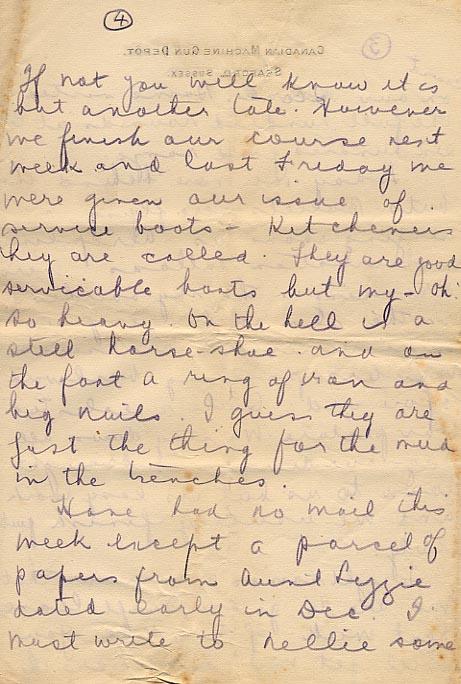 4
If not you will know it is
but another tale. However
we finish our course next
week and last Friday we
were given our issue of
service boots - Kitcheners
they are called. They are good
servicable boots but my - oh!
so heavy. On the hell is a
steel horse-shoe and on
the foot a ring of iron and
big nails. I guess they are
just the thing for the mud
in the trenches.
Have had no mail this
week except a parcel of
papers from Aunt Lizzie
dated early in Dec. I
must write to Nellie some
3
CANADIAN MACHINE GUN DEPOT.
SEAFORD, SUSSEX